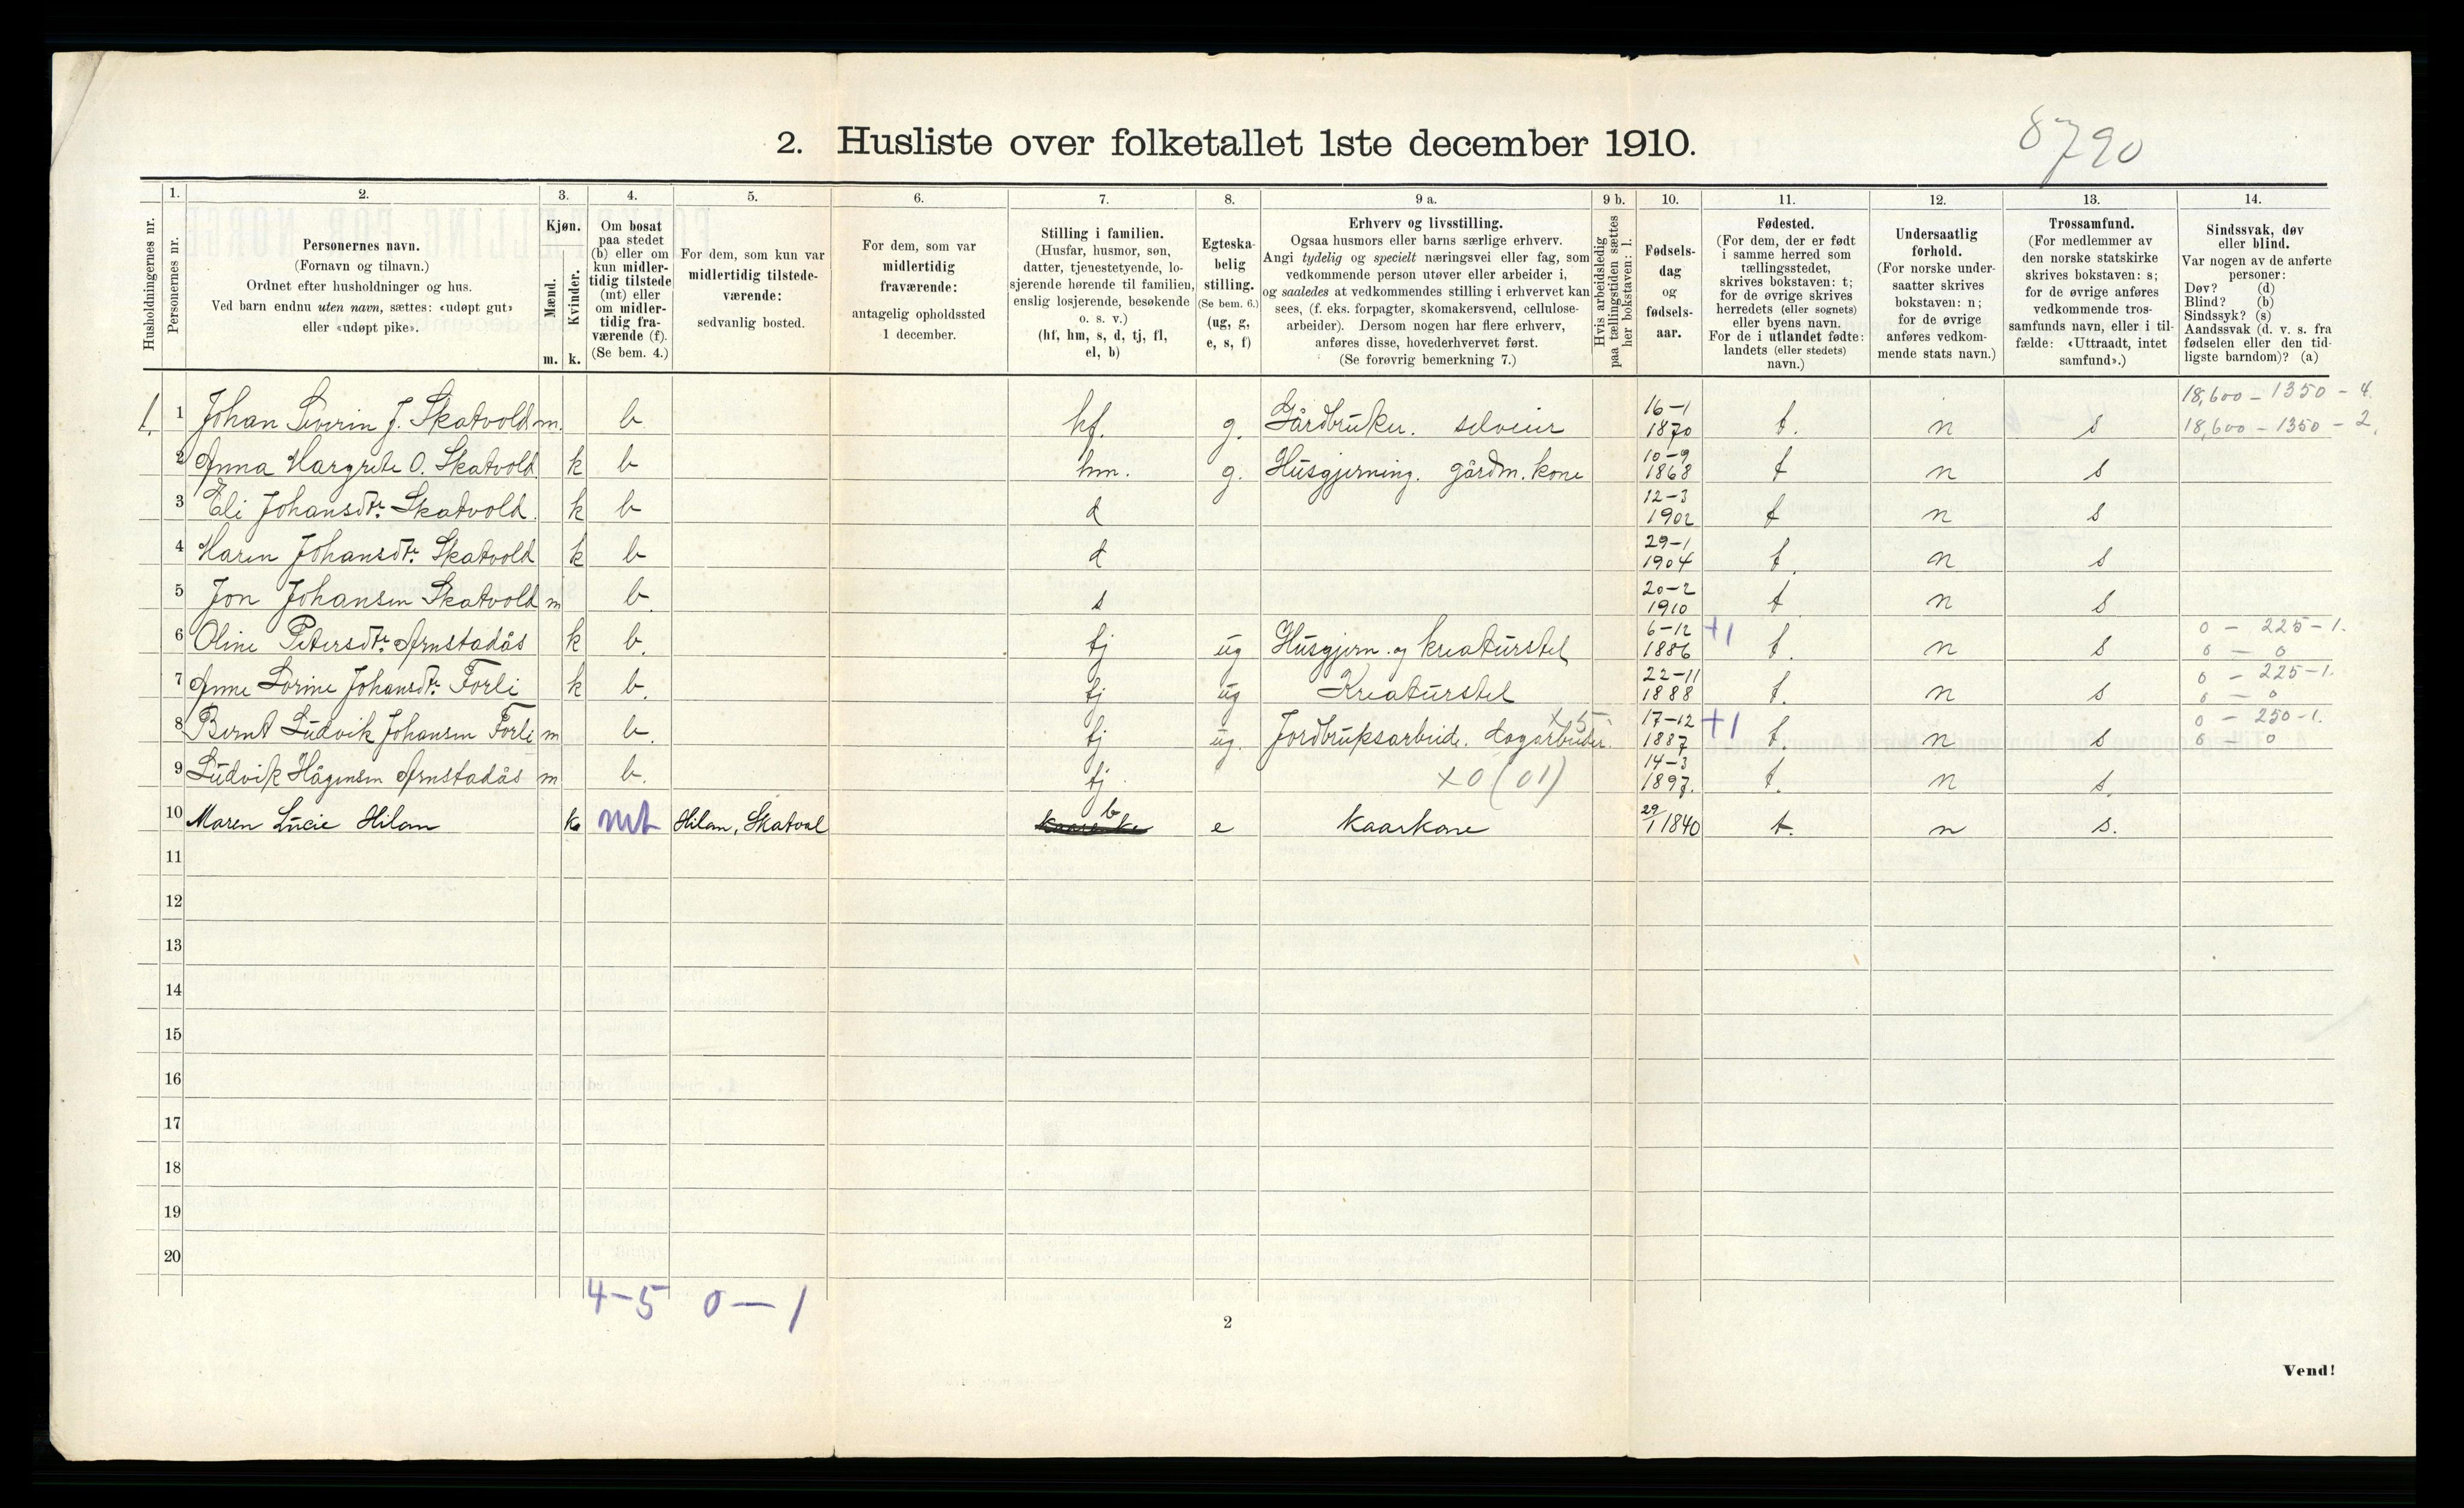 2. Husliste over folketallet 1ste december 1910.
8790
1. 2. 3. 4. 5. 6. 7. 8. 9 a. 9 b. 10. 11. 12. 13. 14.
Husholdningernes nr.
Personernes nr.
Personernes navn.
(Fornavn og tilnavn.)
Ordnet efter husholdninger og hus.
Ved barn endnu uten navn, sættes: «udøpt gut»
eller «udøpt pike».
Kjøn.
Mænd.
Kvinder.
m. k.
Om bosat
paa stedet
(b) eller om
kun midler-
tidig tilstede
(mt) eller
om midler-
tidig fra-
værende (f).
(Se bem. 4.)
For dem, som kun var
midlertidig tilstede-
værende:
sedvanlig bosted.
For dem, som var
midlertidig
fraværende:
antagelig opholdssted
1 december.
Stilling i familien.
(Husfar, husmor, søn,
datter, tjenestetyende, lo-
sjerende hørende til familien,
enslig losjerende, besøkende
o. s. v.)
(hf, hm, s, d, tj, fl,
el, b)
Egteska-
belig
stilling.
(Se bem. 6.)
(ug, g,
e, s, f)
Erhverv og livsstilling.
Ogsaa husmors eller barns særlige erhverv.
Angi tydelig og specielt næringsvei eller fag, som
vedkommende person utøver eller arbeider i,
og saaledes at vedkommendes stilling i erhvervet kan
sees, (f. eks. forpagter, skomakersvend, cellulose-
arbeider). Dersom nogen har flere erhverv,
anføres disse, hovederhvervet først.
(Se forøvrig bemerkning 7.)
Hvis arbeidsledig
paa tællingstiden sættes
her bokstaven: l.
Fødsels-
dag
og
fødsels-
aar.
Fødested.
(For dem, der er født
i samme herred som
tællingsstedet,
skrives bokstaven: t;
for de øvrige skrives
herredets (eller sognets)
eller byens navn.
For de i utlandet fødte:
landets (eller stedets)
navn.)
Undersaatlig
forhold.
(For norske under-
saatter skrives
bokstaven: n;
for de øvrige
anføres vedkom-
mende stats navn.)
Trossamfund.
(For medlemmer av
den norske statskirke
skrives bokstaven: s;
for de øvrige anføres
vedkommende tros-
samfunds navn, eller i til-
fælde: «Uttraadt, intet
samfund».)
Sindssvak, døv
eller blind.
Var nogen av de anførte
personer:
Døv? (d)
Blind? (b)
Sindssyk? (s)
Aandssvak (d. v. s. fra
fødselen eller den tid-
ligste barndom)? (a)
1. 1 Johan Severin J. Skatvold m. b hf. g. Gårdbruker. selveier 16-1 1870 t. n s 18,600 - 1350 - 4. 18,600 - 1350 - 2.
2 Anna Margrete O. Skatvold k b hm. g. Husgjerning. gårdm. kone 10-9 1868 t n s
3 Eli Johansdtr. Skatvold. k b d 12-3 1902 t n s
4 Maren Johansdtr. Skatvold k b d 29-1 1904 t. n s
5 Jon Johansen Skatvold m b. s 20-2 1910 t n s
6 Oline Petersdtr. Arnstadås k b. tj ug Husgjern. og kreaturstel 6-12 1886 +1 t. n s 0 - 225 - 1. 0 - 0
7 Anne Lorine Johansdtr. Forli k b. tj ug Kreaturstel 22-11 1888 t. n s 0 - 225 - 1. 0 - 0
8 Bernt Ludvik Johansen Forli m b. tj ug. Jordbruksarbeide. dagarbeider. x5 17-12 1887 +1 t. n s 0 - 250 - 1. 0 - 0
9 Ludvik Hågensen Arnstadås m b. tj. x0 (01) 14-3 1897. t. n s.
10 Maren Lucie Hilan k mt Hilan, Skatval b e kaarkone 29/1 1840 t. n s.
11
12
13
14
15
16
17
18
19
20
4-5 0-1
2
Vend!